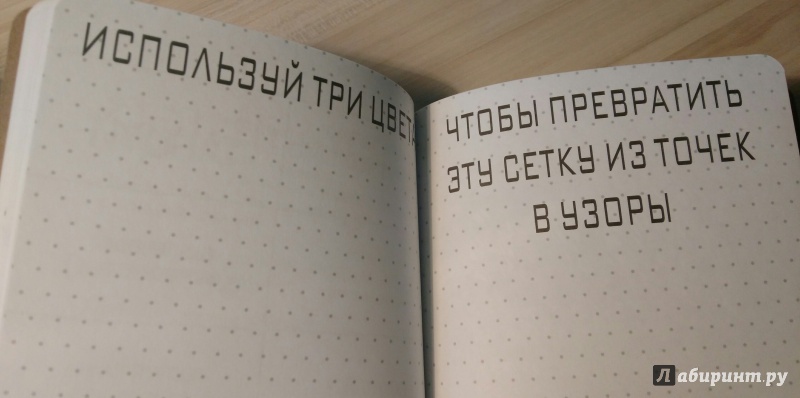 ИСПОЛЬЗУЙ ТРИ ЦВЕТА
ЧТОБЫ ПРЕВРАТИТЬ
ЭТУ СЕТКУ ИЗ ТОЧЕК
В УЗОРЫ
Лабиринт.ру